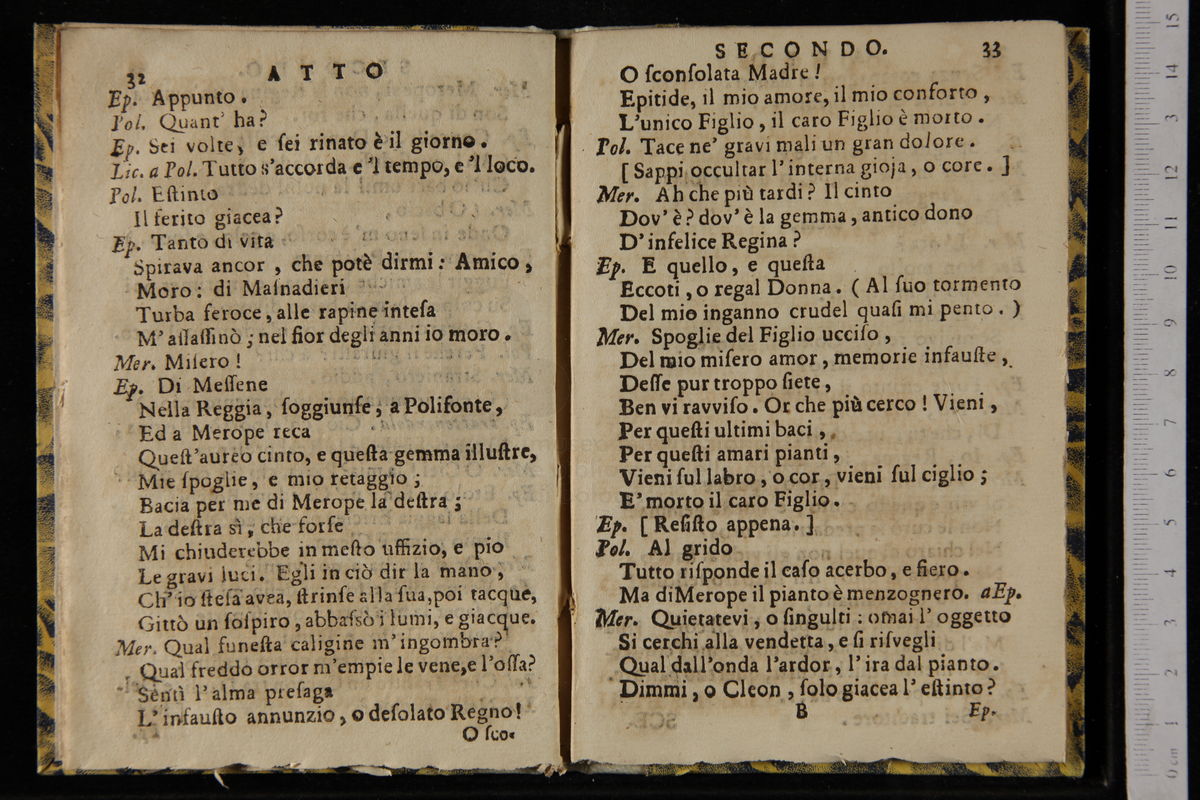 32 ATTO
Ep. Appunto.
Pol. Quant' ha?
Ep. Sei volte, e ſei rinato è il giorno.
Lic. a Pol. Tutto s'accorda e 'l tempo, e 'l loco.
Pol. Eſtinto
Il ferito giacea?
Ep. Tanto di vita
Spirava ancor, che potè dirmi: Amico,
Moro: di Maſnadieri
Turba feroce, alle rapine inteſa
M' aſſaſſinò; nel fior degli anni io moro.
Mer. Miſero!
Ep. Di Meſſene
Nella Reggia, ſoggiunſe, a Polifonte,
Ed a Merope reca
Queſt'aureo cinto, e queſta gemma illuſtre,
Mie ſpoglie, e mio retaggio;
Bacia per me di Merope la deſtra;
La deſtra sì, che forſe
Mi chiuderebbe in meſto uffizio, e pio
Le gravi luci. Egli in ciò dir la mano,
Ch' io ſteſa avea, ſtrinſe alla ſua, poi tacque,
Gittò un ſoſpiro, abbaſsò i lumi, e giacque.
Mer. Qual funeſta caligine m'ingombra?
Qual freddo orror m'empie le vene, e l'oſſa?
Sentì l'alma preſaga
L' infauſto annunzio, o deſolato Regno!
O ſco-
SECONDO. 33
O ſconſolata Madre!
Epitide, il mio amore, il mio conforto,
L'unico Figlio, il caro Figlio è morto.
Pol. Tace ne' gravi mali un gran dolore.
[Sappi occultar l'interna gioja, o core.]
Mer. Ah che più tardi? Il cinto
Dov' è? dov' è la gemma, antico dono
D' infelice Regina?
Ep. E quello, e queſta
Eccoti, o regal Donna. (Al ſuo tormento
Del mio inganno crudel quaſi mi pento.)
Mer. Spoglie del Figlio ucciſo,
Del mio miſero amor, memorie infauſte,
Deſſe pur troppo ſiete,
Ben vi ravviſo. Or che più cerco! Vieni,
Per queſti ultimi baci,
Per queſti amari pianti,
Vieni ſul labro, o cor, vieni ſul ciglio;
E' morto il caro Figlio.
Ep. [Reſiſto appena.]
Pol. Al grido
Tutto riſponde il caſo acerbo, e fiero.
Ma diMerope il pianto è menzognero. aEp.
Mer. Quietatevi, o ſingulti: omai l' oggetto
Si cerchi alla vendetta, e ſi riſvegli
Qual dall'onda l'ardor, l' ira dal pianto.
Dimmi, o Cleon, ſolo giacea l' eſtinto?
B Ep.
0 cm 1 2 3 4 5 6 7 8 9 10 11 12 13 14 15